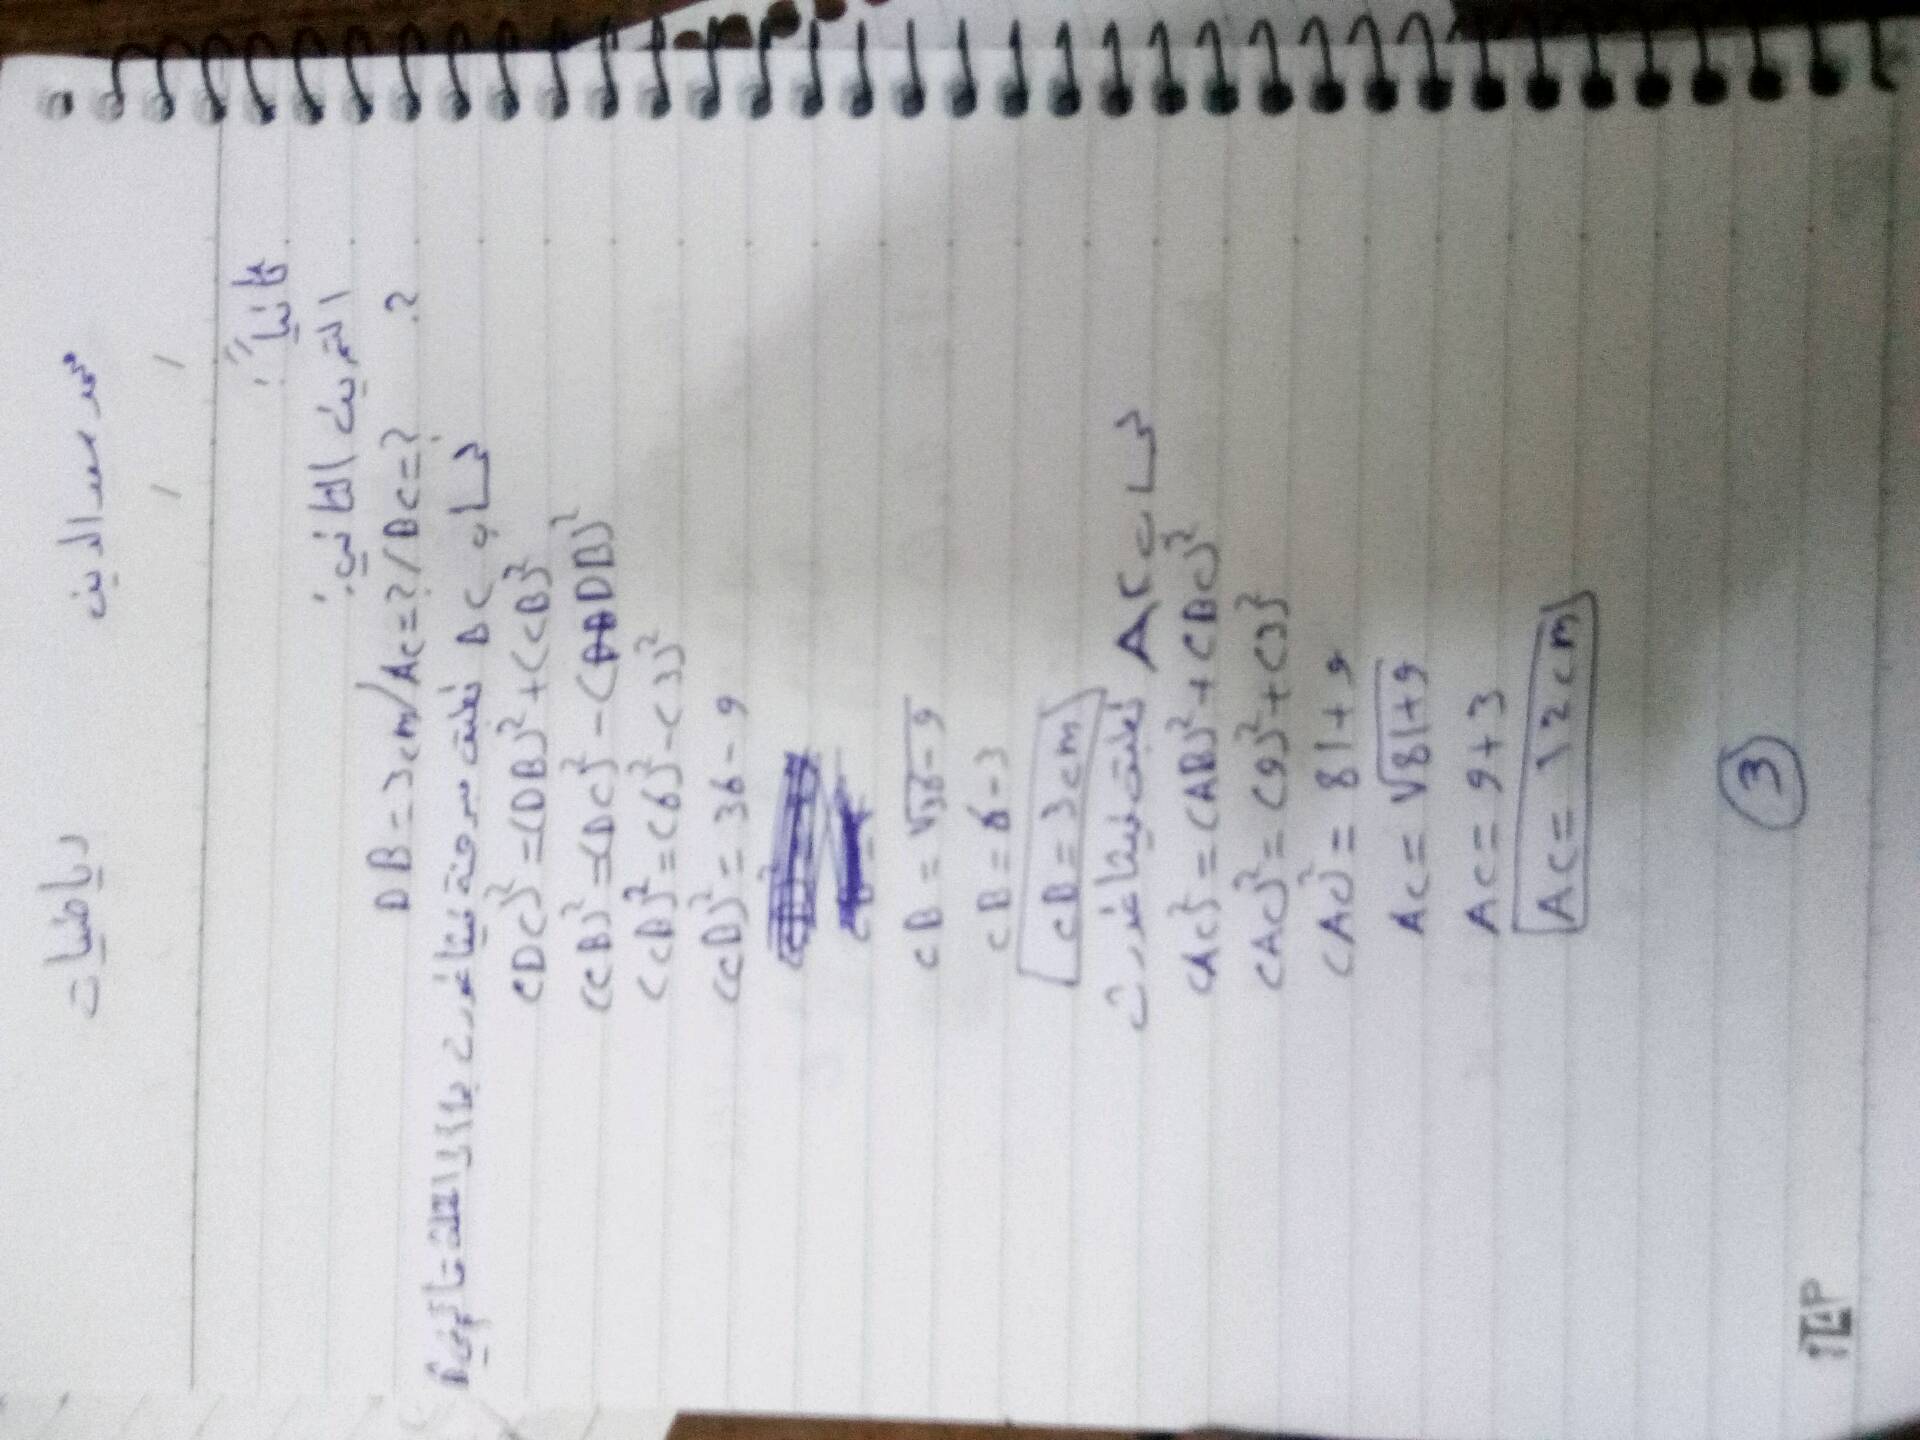 رياضيات محمد سعد الدين
ثانياً:
التمرين الثاني:
DB=3cm/AC=?/BC=?
حساب BC نطبق مبرهنة فيثاغورث بالزاوية القائمة B
(DC)²=(DB)²+(CB)²
(CB)²=(DC)²-(DB)²
(CB)²=(6)²-(3)²
(CB)²=36-9
CB=√36-9
CB=6-3
CB=3cm
حساب AC نطبق فيثاغورث
(AC)²=(AB)²+(BC)²
(AC)²=(9)²+(3)²
(AC)²=81+9
AC=√81+9
AC=9+3
AC=12cm
3